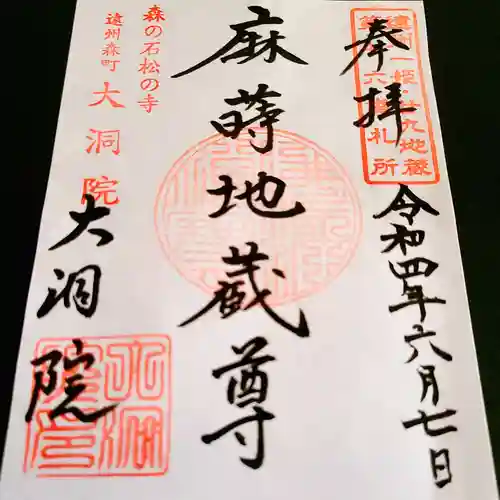 奉拝
令和四年六月七日
麻蒔地蔵尊
森の石松の寺
遠州森町
大洞院
大洞院
札所